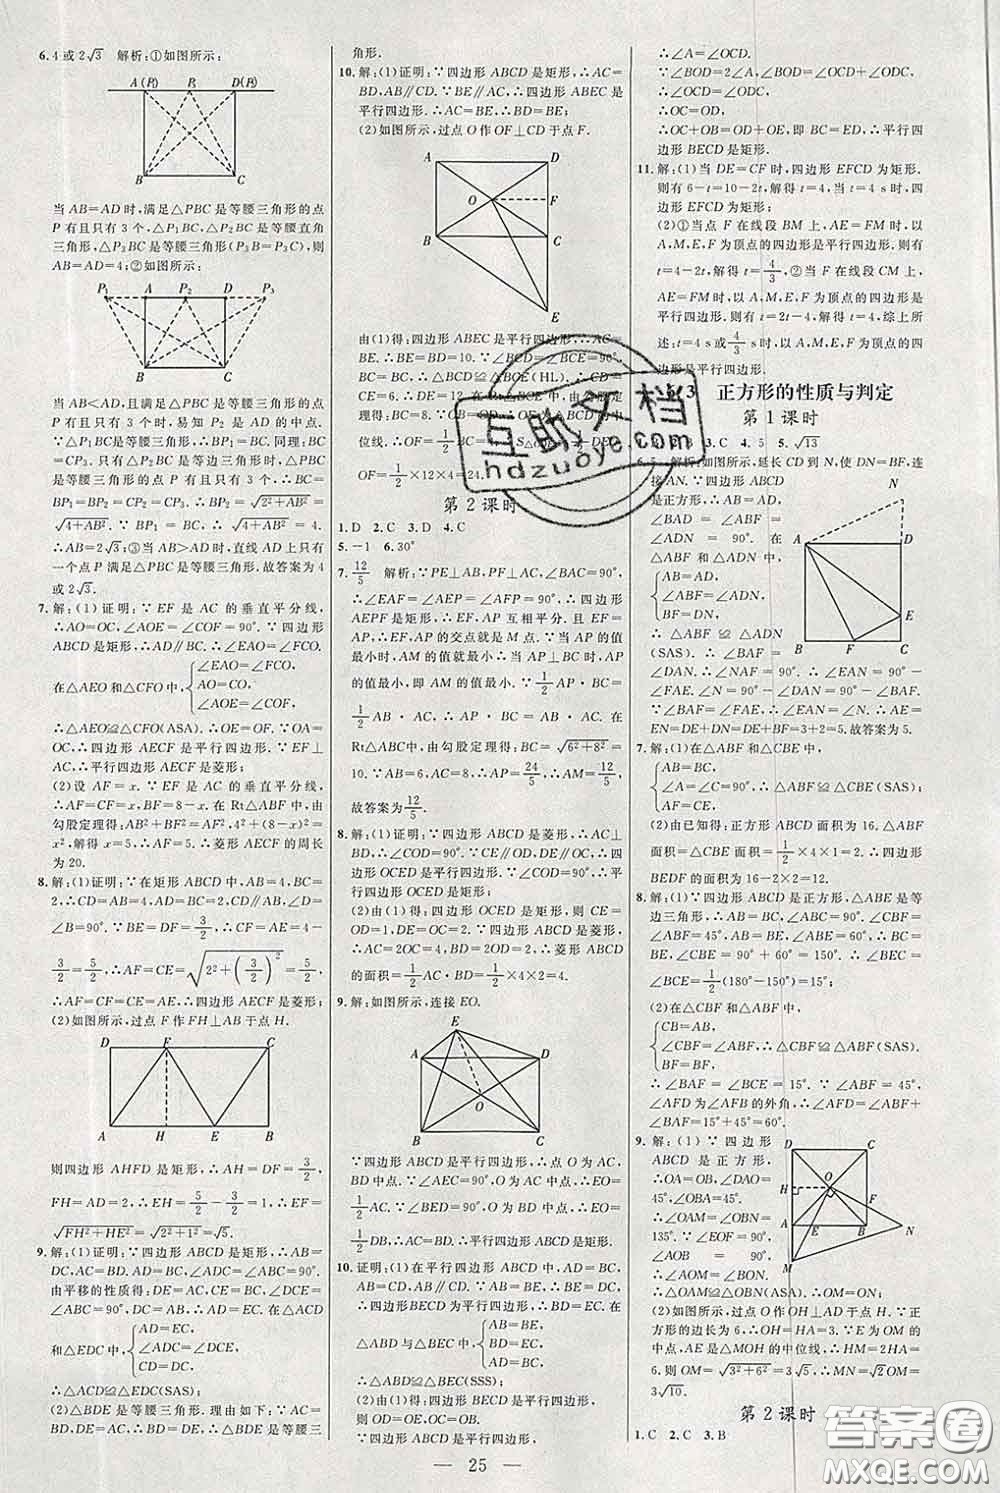 6.4或2√3 解析:①如图所示:
A(P₁) P₃ D(P₂)
B C
当AB=AD时,满足△PBC是等腰三角形的点
P有且只有3个,△P₁BC,△P₂BC是等腰直角
三角形,△P₃BC是等腰三角形(P₃B=P₃C),则
AB=AD=4;②如图所示:
P₁ A P₂ D P₃
B C
当AB<AD,且满足△PBC是等腰三角形的点P
有且只有3个时,易知P₂是AD的中点.
∵△PBC是等腰三角形,∴BP₁=BC.同理:BC=
CP₃.∵△PBC是等腰三角形的点P有且只有3个,∴BP₁=BC.
BP₁=BP₂=BP₃=√(2²+AB²)=
√(4+AB²).∵BP₁=BC=4,∴√(4+AB²)=4.
∴AB=2√3;③当AB>AD时,直线AD上只有
一个点P满足△PBC是等腰三角形.故答案为4
或2√3.
7.解:(1)证明:∵EF是AC的垂直平分线,
∴AO=OC,∠AOE=∠COF=90°.∵四边形
ABCD是矩形,∴AD∥BC.∴∠EAO=∠FCO.
在△AEO和△CFO中,{∠EAO=∠FCO,
AO=CO,
∠AOE=∠COF,
∴△AEO≌△CFO(ASA).∴OE=OF.∵OA=
OC,∴四边形AECF是平行四边形.∵EF⊥
AC,∴平行四边形AECF是菱形;
(2)设AF=x.∵EF是AC的垂直平分线,
∴AF=CF=x,BF=8-x.在Rt△ABF中,由
勾股定理得:AB²+BF²=AF²,4²+(8-x)²=
x²,解得x=5,∴AF=5.∴菱形AECF的周长
为20.
8.解:(1)证明:∵在矩形ABCD中,AB=4,BC=
2,∴CD=AB=4,AD=BC=2,CD∥AB,∠D=
∠B=90°.∵BE=DF=3/2,∴CF=AE=4-
3/2=5/2,∴AF=CE=√(2²+(3/2)²)=5/2.
∴AF=CF=CE=AE.∴四边形AECF是菱形;
(2)如图所示,过点F作FH⊥AB于点H.
D F C
A H E B
则四边形AHFD是矩形,∴AH=DF=3/2,
FH=AD=2.∴HE=5/2-3/2=1.∴EF=
√(FH²+HE²)=√(2²+1²)=√5.
9.解:(1)证明:∵四边形ABCD是矩形,∴AB=
DC,AC=BD,AD=BC,∠ADC=∠ABC=90°.
由平移的性质得:DE=AC,CE=BC,∠DCE=
∠ABC=90°,DC=AB.∴AD=EC.在△ACD
和△EDC中,{AD=EC,
∠ADC=∠DCE,
CD=DC,
∴△ACD≌△EDC(SAS);
(2)△BDE是等腰三角形.理由如下:∵AC=
BD,DE=AC,∴BD=DE.∴△BDE是等腰三
角形.
10.解:(1)证明:∵四边形ABCD是矩形,∴AC=
BD,AB∥CD.∵BE∥AC,∴四边形ABEC是
平行四边形.∴AC=BE.∴BD=BE;
(2)如图所示,过点O作OF⊥CD于点F.
A D
O F
B C
E
由(1)得:四边形ABEC是平行四边形,∴AC=
BE.∵AC=BD=10.∴BE=10.∵∠BCD=∠BCE=90°,
BC=BC,∴△BCD≌△BCE(HL).∴CD=
CE=6.∴DE=12.在Rt△BCE中,由勾股定
理得:BC=8.∵OF是△BCD的中
位线,∴OF=1/2BC=4.∴S△ODE=1/2DE·
OF=1/2×12×4=24.
第2课时
1.D 2.C 3.D 4.C
5.-1 6.30°
7.12/5 解析:∵PE⊥AB,PF⊥AC,∠BAC=90°,
∴∠EAF=∠AEP=∠AFP=90°.∴四边形
AEPF是矩形.∴EF,AP互相平分.且EF=
AP,∴EF,AP的交点就是M点.∵当AP的值
最小时,AM的值最小,∴当AP⊥BC时,AP
的值最小,即AM的值最小.∵1/2AP·BC=
1/2AB·AC,∴AP·BC=AB·AC.在
Rt△ABC中,由勾股定理得:BC=√(6²+8²)=
10.∵AB=6,AC=8,∴AP=24/5,∴AM=12/5,
故答案为12/5.
8.解:(1)证明:∵四边形ABCD是菱形,∴AC⊥
BD,∴∠COD=90°.∵CE∥OD,DE∥OC,∴四
边形OCED是平行四边形.∵∠COD=90°,∴平
行四边形OCED是矩形;
(2)由(1)得:四边形OCED是矩形,则CE=
OD=1,DE=OC=2.∵四边形ABCD是菱形,
∴AC=2OC=4,BD=2OD=2.∴菱形ABCD
的面积=1/2AC·BD=1/2×4×2=4.
9.解:如图所示,连接EO.
E
A D
O
B C
∵四边形ABCD是平行四边形,∴点O为AC和
BD中点.∵∠AEC=90°,O为AC中点,∴EO=
1/2AC.∵∠BED=90°,O为BD中点,∴EO=
1/2DB,∴AC=BD.∴平行四边形ABCD是矩形.
10.证明:(1)在平行四边形ABCD中,AD=BC,
AB=CD,AB∥CD.∵BE=AB,∴BE=CD,
∴四边形BECD为平行四边形.∴BD=EC.在
△ABD与△BEC中,{AB=BE,
BD=EC,
AD=BC,
∴△ABD≌△BEC(SSS);
(2)由(1)得:四边形BECD是平行四边形,
则OD=OE,OC=OB.
∵四边形ABCD是平行四边形,
∴∠A=∠OCD.
∵∠BOD=2∠A,∠BOD=∠OCD+∠ODC,
∴∠OCD=∠ODC.
∴OC=OD,
∴OC+OB=OD+OE,即BC=ED,∴平行四
边形BECD是矩形.
11.解:(1)当DE=CF时,四边形EFCD为矩形.
则有6-t=10-2t,解得t=4,当t=4 s时,四
边形EFCD为矩形;
(2)①当点F在线段BM上,AE=FM时,以
A,M,E,F为顶点的四边形是平行四边形.则有
t=4-2t,解得t=4/3,②当F在线段CM上,
AE=FM时,以A,M,E,F为顶点的四边形是
平行四边形.则有t=2t-4,解得t=4,综上所
述:t=4 s或4/3 s时,以A,M,E,F为顶点的四边
形是平行四边形.
3 正方形的性质与判定
第1课时
3.C 4.5 5.√13
6.5 解析:如图所示,延长CD到N,使DN=BF,连
接AN.∵四边形ABCD
是正方形,∴AB=AD,
∠BAD=∠ABF=
∠ADN=90°.在
△ABF和△ADN中,
{AB=AD,
∠ABF=∠ADN,
BF=DN,
∴△ABF≌△ADN
(SAS).∴∠BAF=
∠DAN.∴AF=AN.∵∠NAF=90°.∵∠EAF=45°,∴∠EAN=90°-45°=45°=
∠FAE.∵AE=AE,∴△FAE≌△NAE.∴EF=
EN=DE+DN=DE+BF=3+2=5.故答案为5.
7.解:(1)在△ABF和△CBE中,
{AB=BC,
∠A=∠C=90°,∴△ABF≌△CBE(SAS);
AF=CE,
(2)由已知得:正方形ABCD面积为16.△ABF
面积=△CBE面积=1/2×4×1=2.∴四边形
BEDF的面积为16-2×2=12.
8.解:(1)∵四边形ABCD是正方形,△ABE是等
边三角形,∴∠ABC=90°,∠CBF=
∠ABF=45°,AB=BE,∠ABE=60°,AB=
BC.∴∠CBE=90°+60°=150°,BC=BE.
∴∠BCE=1/2(180°-150°)=15°;
(2)∵在△CBF和△ABF中,
{CB=AB,
∠CBF=∠ABF,∴△CBF≌△ABF(SAS).
BF=BF,
∴∠BAF=∠BCE=15°.∵∠ABF=45°,
∠AFD为△AFB的外角,∴∠AFD=∠ABF+
∠FAB=15°+45°=60°.
9.解:(1)∵四边形
ABCD是正方形,
∴OA=OB,∠DAO=
45°,∠OBA=45°.
∴∠OAM=∠OBN=
135°.∵∠EOF=90°,
∠AOB=90°,
∴∠AOM=∠BON.
∴△OAM≌△OBN(ASA).∴OM=ON;
D C
H O F
A E B N
M
(2)如图所示,过点O作OH⊥AD于点H.∵正
方形的边长为6,∴OH=HA=3.∵E为OM的
中点,AE是△MOH的中位线,∴HM=2HA=
6.则OM=√(3²+6²)=3√5,∴MN=√2OM=
3√10.
第2课时
1.C 2.C 3.B
25
互助文档
hdzuoye.com
答案圈
MXQE.COM